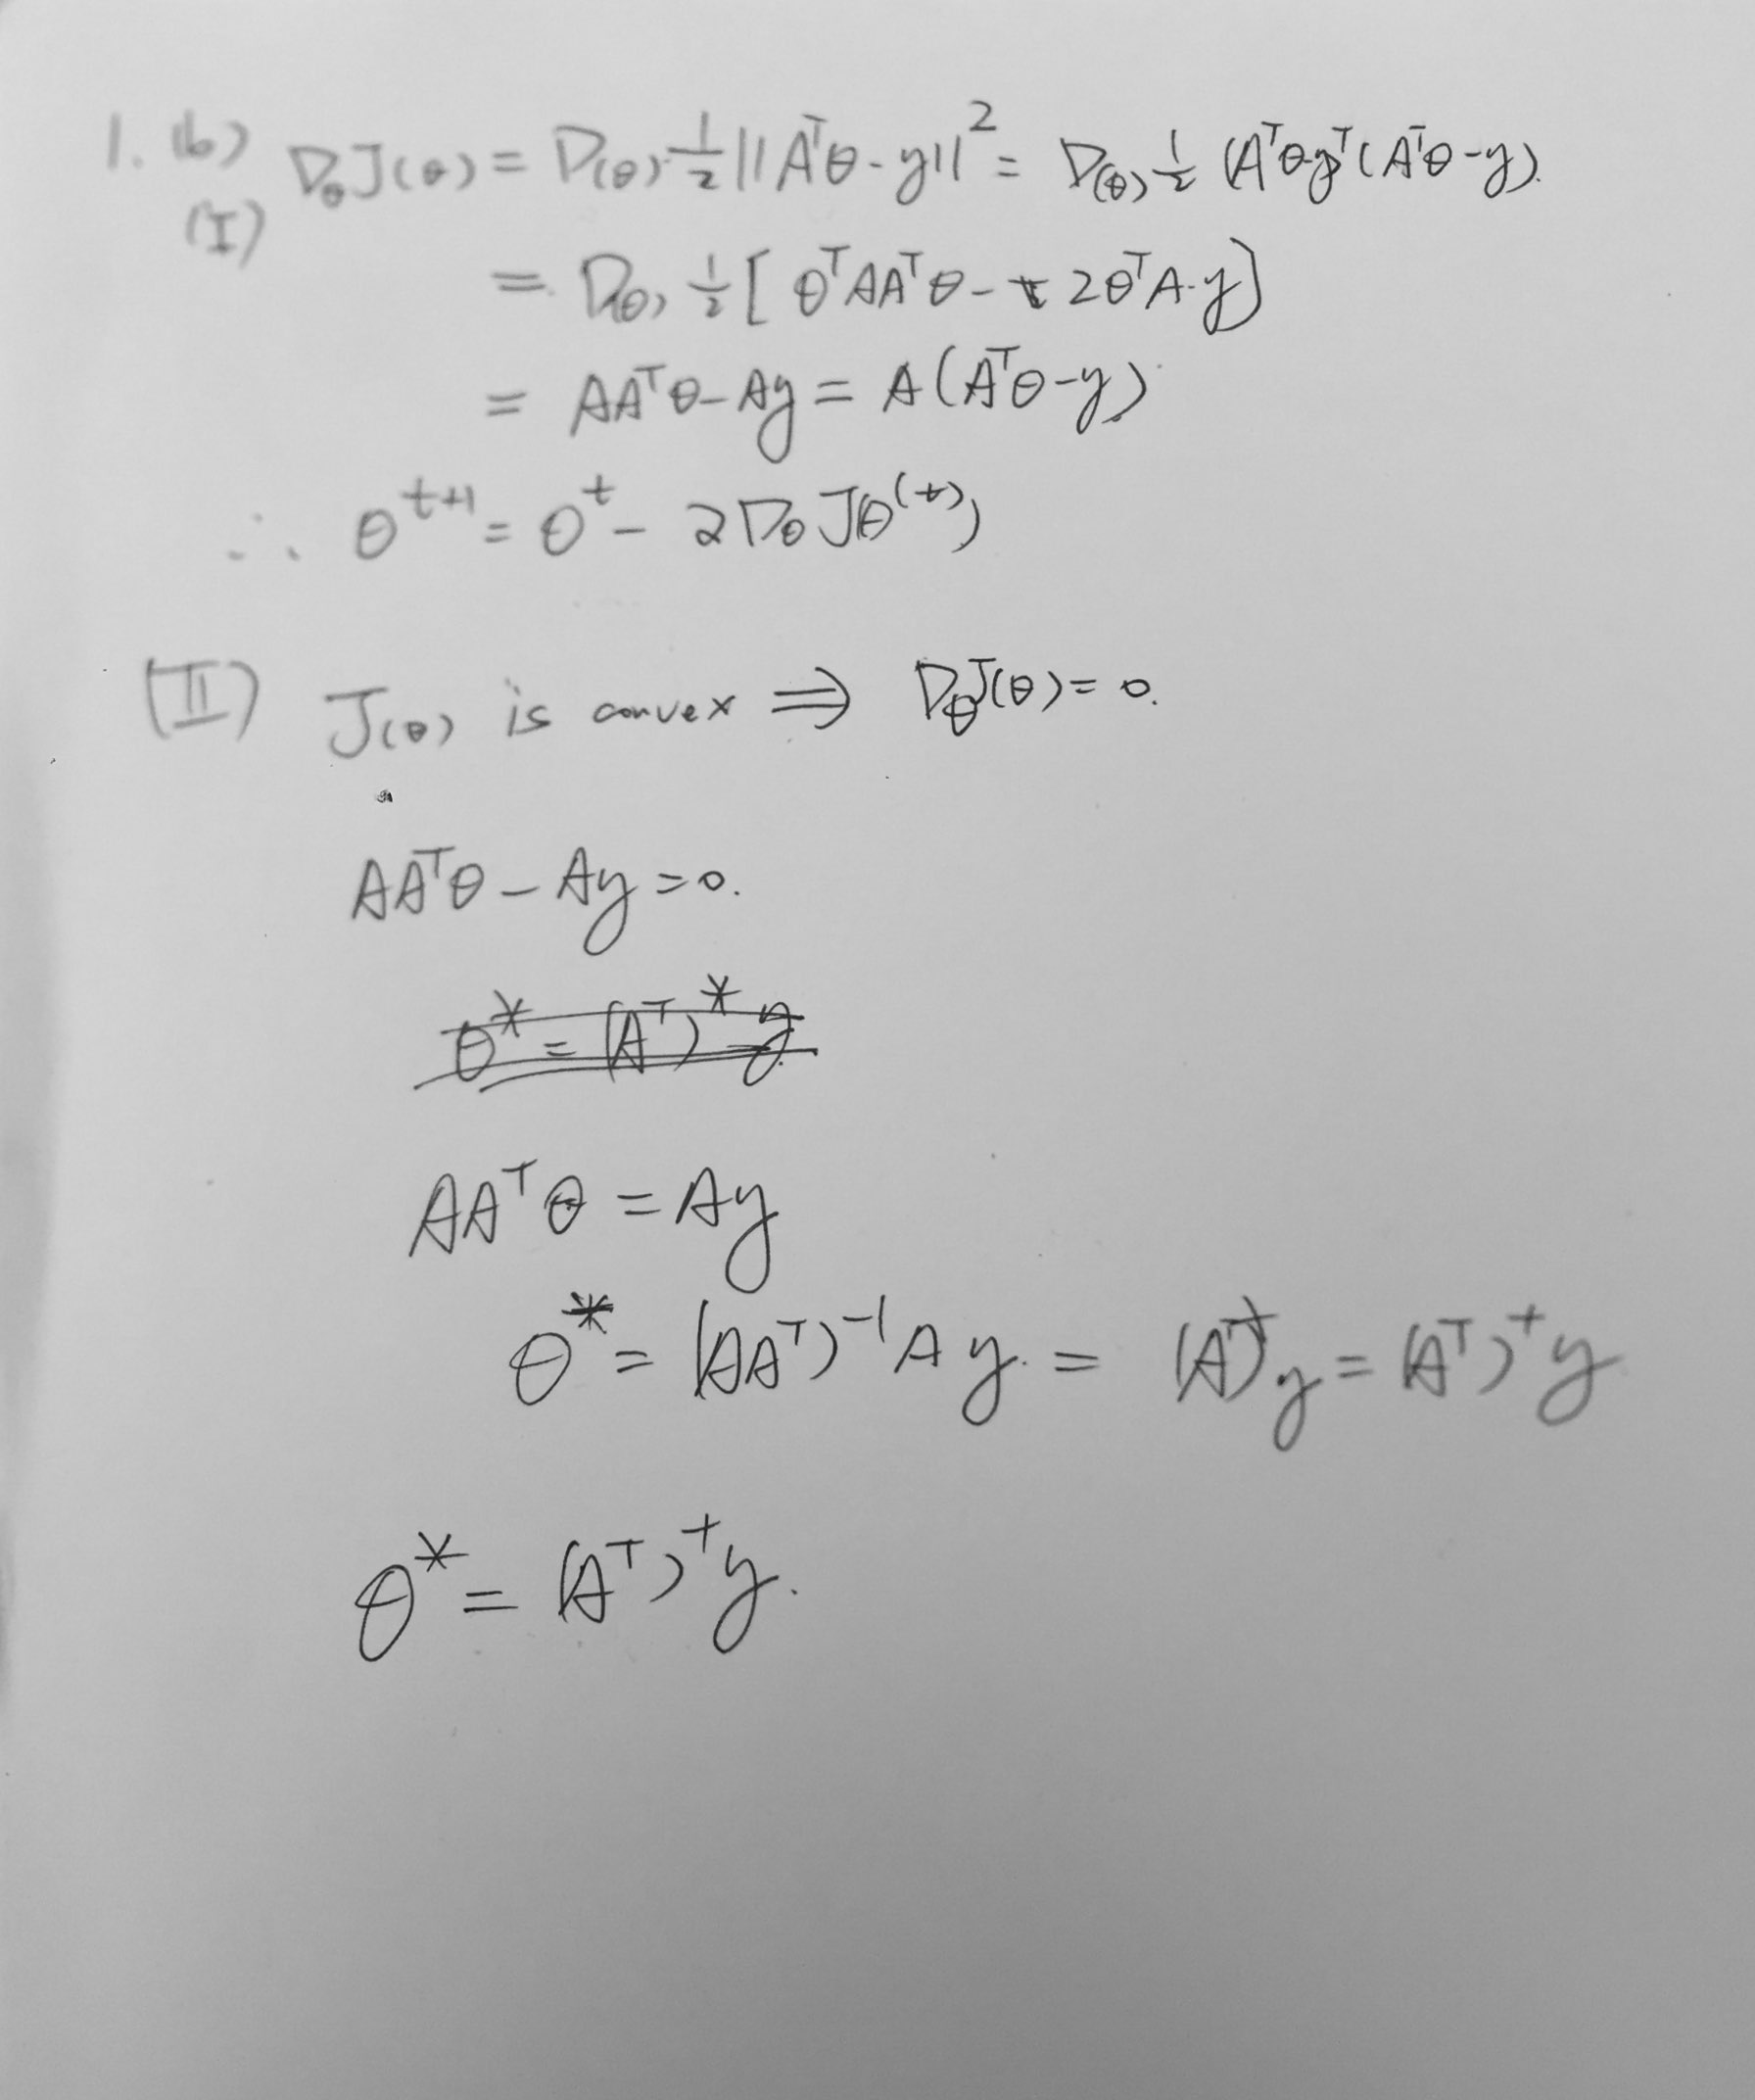 1. (b) ∇θJ(θ) = ∇(θ) ½||Aᵀθ - y||² = ∇(θ) ½ (Aᵀθ-y)ᵀ(Aᵀθ-y).
(I)
= ∇(θ) ½[θᵀAAᵀθ - 2θᵀA·y]
= AAᵀθ - Ay = A(Aᵀθ-y)
∴ θᵗ⁺¹ = θᵗ - 2∇θ Jθ⁽ᵗ⁾)
(II) J(θ) is convex ⟹ ∇θJ(θ) = 0.
AAᵀθ - Ay = 0.
θ* = (Aᵀ)* y
AAᵀθ = Ay
θ* = (AAᵀ)⁻¹Ay. = (Aᵀ)⁺y = (Aᵀ)⁺y
θ* = (Aᵀ)⁺y.